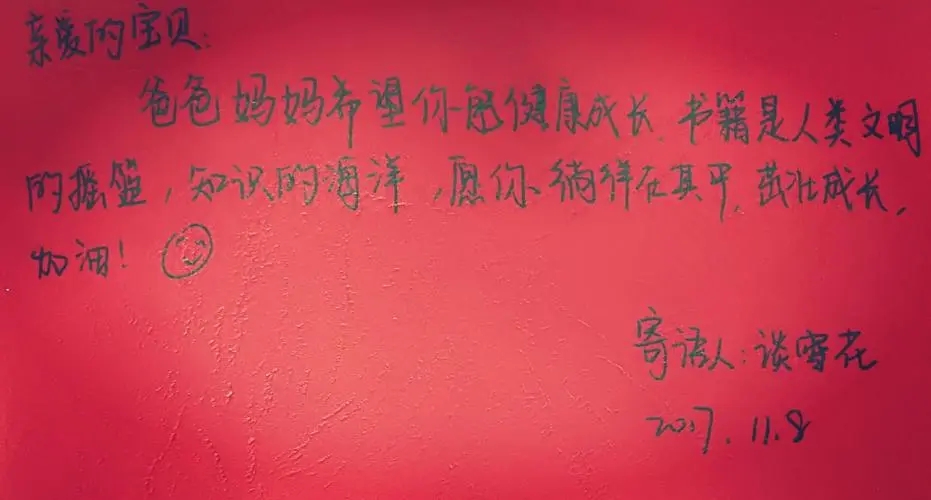 亲爱的宝贝:
爸爸妈妈希望你能健康成长.书籍是人类文明
的摇篮,知识的海洋,愿你徜徉在其中.茁壮成长,
加油!
寄语人:谈雪花
2017.11.8